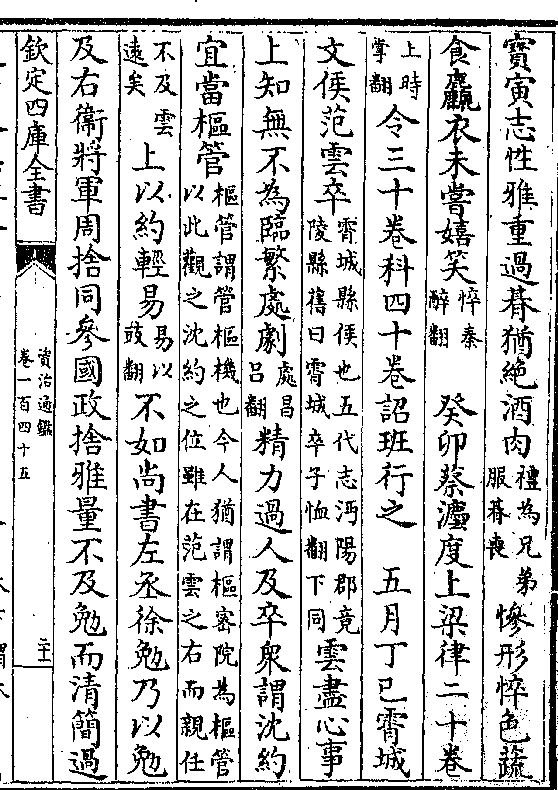 寶寅志性雅重過朞猶絶酒肉禮為兄弟服朞喪慘形悴色蔬
食麤衣未嘗嬉笑悴秦醉翻 癸卯蔡灋度上梁律二十卷
上時掌翻令三十卷科四十卷詔班行之 五月丁巳霄城
文侯范雲卒霄城縣侯也五代志沔陽郡竟陵縣舊曰霄城卒子恤翻下同雲盡心事
上知無不為臨繁處劇處昌呂翻精力過人及卒衆謂沈約
宜當樞管樞管謂管樞機也今人猶謂樞密院為樞管以此觀之沈約之位雖在范雲之右而親任
不及雲遠矣上以約輕易易以豉翻不如尚書左丞徐勉乃以勉
及右衞將軍周捨同參國政捨雅量不及勉而清簡過
欽定四庫全書
資治通鑑
卷一百四十五
二十